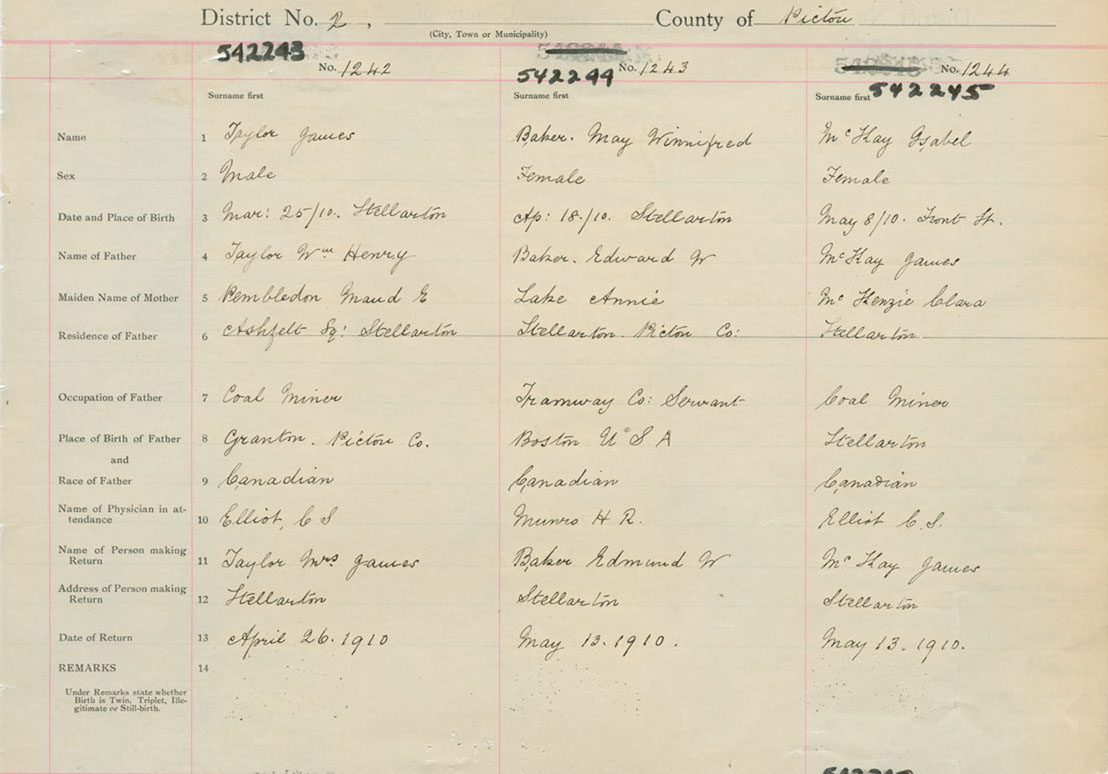 District No. 2, County of Pictou
(City, Town or Municipality)
542243 542244 542245
No. 1242 No. 1243 No. 1244
Surname first Surname first Surname first
Name 1 Taylor James Baker. May Winnifred McKay Isabel
Sex 2 Male Female Female
Date and Place of Birth 3 Mar: 25/10. Stellarton Ap: 18./10. Stellarton May 8/10. Front St.
Name of Father 4 Taylor Wm Henry Baker. Edward W McKay James
Maiden Name of Mother 5 Pembledon Maud E Lake Annie McKenzie Clara
Residence of Father 6 Ashfelt Sq: Stellarton Stellarton. Pictou Co: Stellarton
Occupation of Father 7 Coal Miner Tramway Co: Servant Coal Miner
Place of Birth of Father 8 Granton. Pictou Co. Boston U S A Stellarton
and
Race of Father 9 Canadian Canadian Canadian
Name of Physician in at-
tendance 10 Elliot, C S Munro H R. Elliot C. S.
Name of Person making
Return 11 Taylor Mrs James Baker Edmund W McKay James
Address of Person making
Return 12 Stellarton Stellarton Stellarton
Date of Return 13 April 26. 1910 May 13. 1910. May 13. 1910.
REMARKS 14
Under Remarks state whether
Birth is Twin, Triplet, Ille-
gitimate or Still-birth.